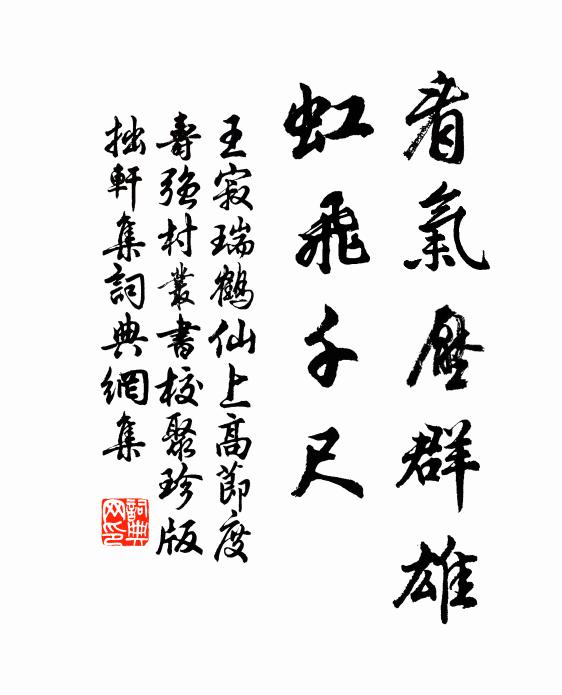 看氣壓群雄
虹飛千尺
王寂瑞鶴仙上高節度
壽強村叢書校聚珍版
拙軒集詞典網集
詞典網印